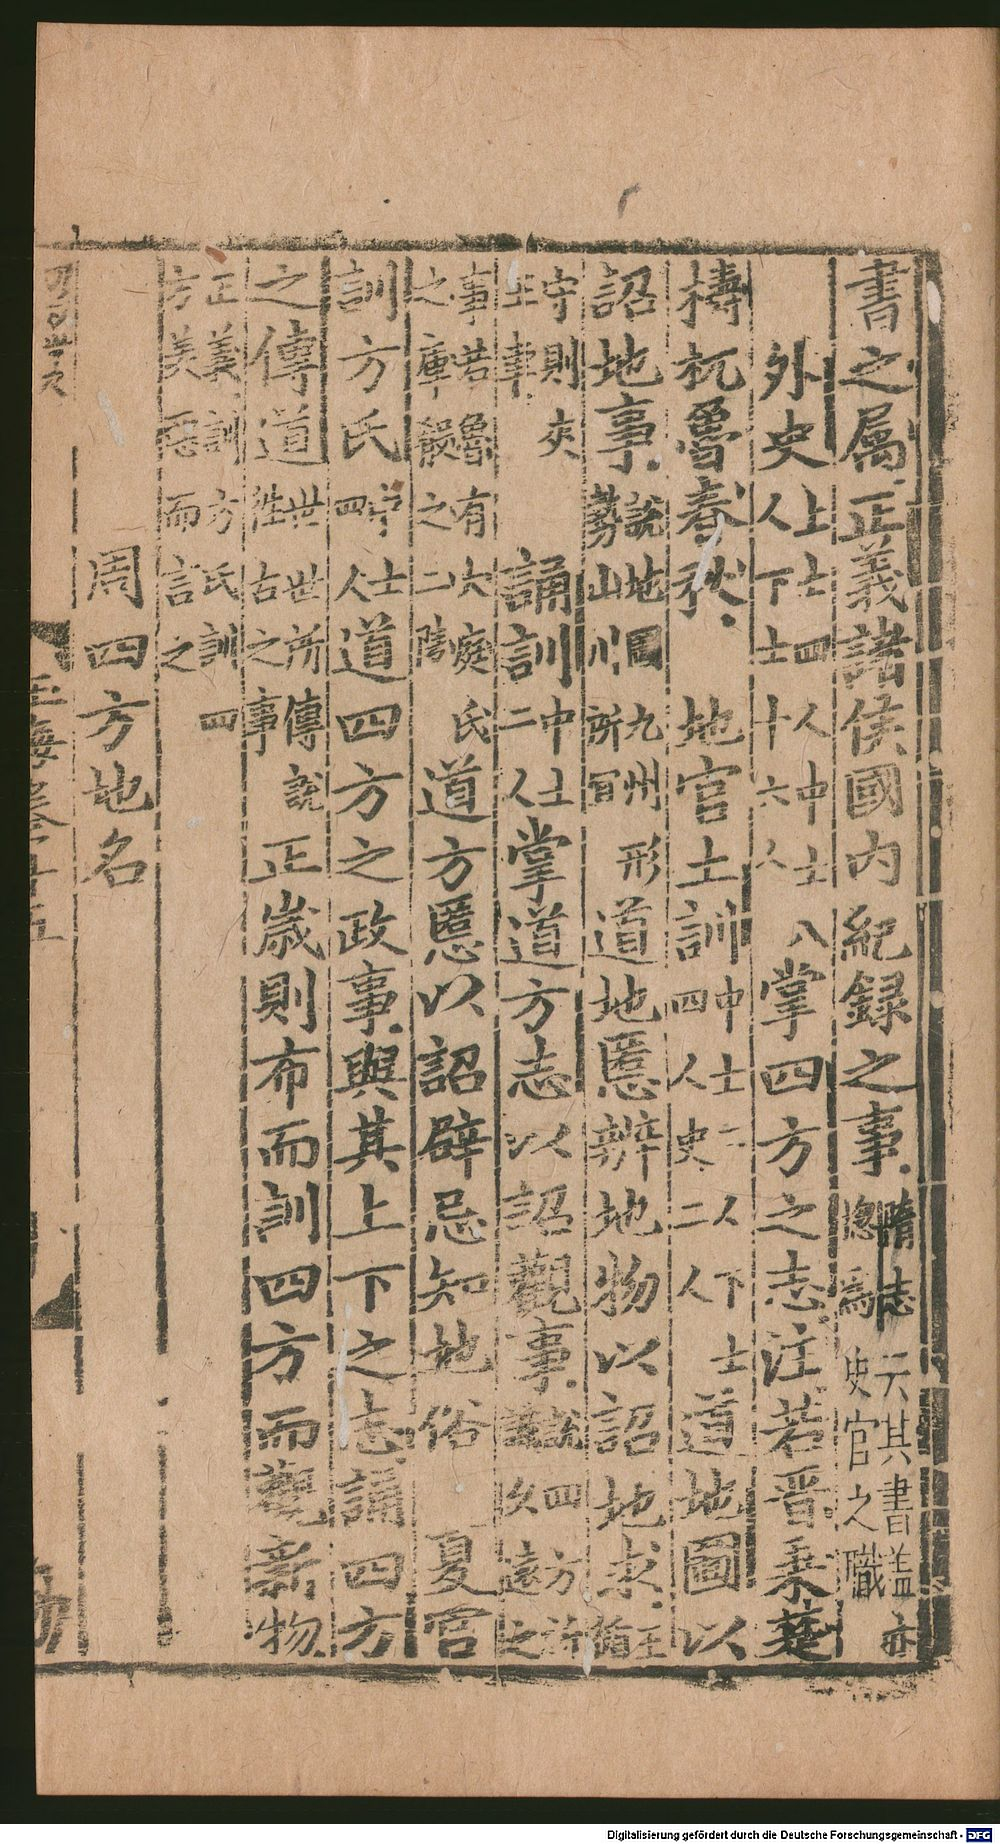 書之屬正義諸侯國内紀録之事隋志云其書盖亦揔為史官之職
外史上士四人中士八人下士十六人掌四方之志注若晋乗楚
檮杌魯春秋 地官土訓中士二人下士四人史二人道地圖以
詔地事說地圖九州形勢山川所宜道地慝辨地物以詔地求王循
守則夾王車 誦訓中士二人掌道方志以詔觀事說四方所識久遠之
事若魯有大庭氏之庫殽之二陵道方慝以詔辟忌知地俗 夏官
訓方氏中士四人道四方之政事與其上下之志誦四方
之傳道世世所傳說徃古之事正歲則布而訓四方而觀新物
正義訓方氏訓四方美惡而言之
周四方地名
玉海卷十五
Digitalisierung gefördert durch die Deutsche Forschungsgemeinschaft - DFG